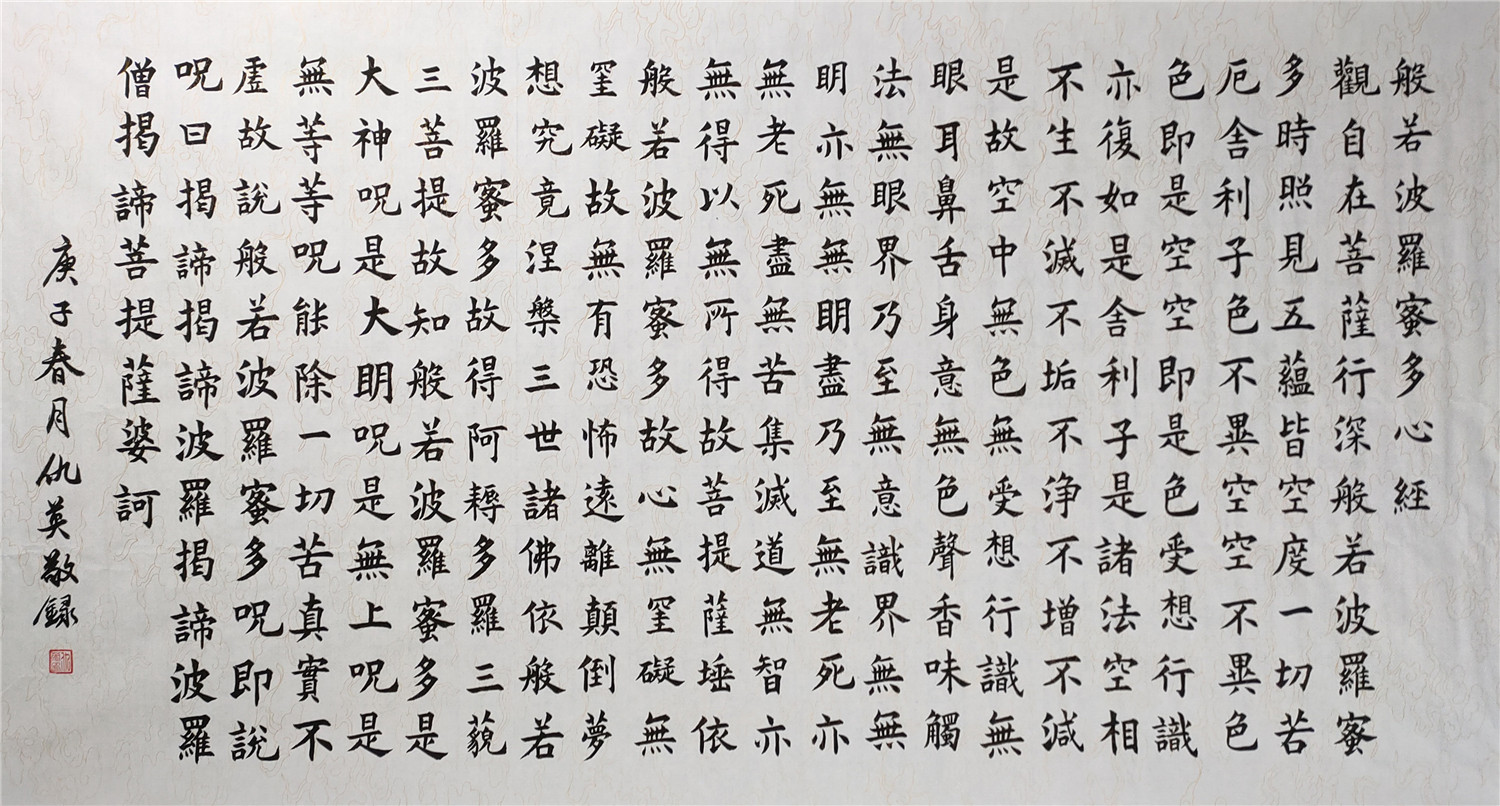 般若波羅蜜多心經
觀自在菩薩行深般若波羅蜜
多時照見五蘊皆空度一切苦
厄舍利子色不異空空不異色
色即是空空即是色受想行識
亦復如是舍利子是諸法空相
不生不滅不垢不淨不增不減
是故空中無色無受想行識無
眼耳鼻舌身意無色聲香味觸
法無眼界乃至無意識界無無
明亦無無明盡乃至無老死亦
無老死盡無苦集滅道無智亦
無得以無所得故菩提薩埵依
般若波羅蜜多故心無罣礙無
罣礙故無有恐怖遠離顛倒夢
想究竟涅槃三世諸佛依般若
波羅蜜多故得阿耨多羅三藐
三菩提故知般若波羅蜜多是
大神呪是大明呪是無上呪是
無等等呪能除一切苦真實不
虛故說般若波羅蜜多呪即說
呪曰揭諦揭諦波羅揭諦波羅
僧揭諦菩提薩婆訶
庚子春月仇英敬録